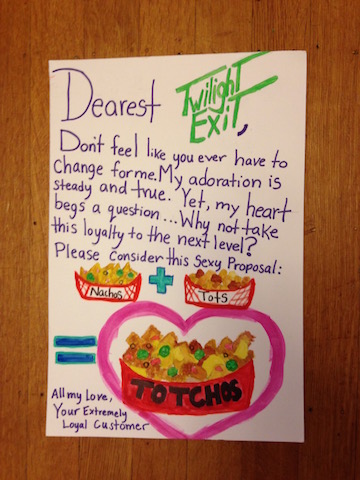 Dearest Twilight
Exit,
Don't feel like you ever have to
Change for me. My adoration is
steady and true. Yet, my heart
begs a question... Why not take
this loyalty to the next level?
Please Consider this Sexy Proposal:
Nachos + Tots
=
TOTCHOS
All my Love,
Your Extremely
Loyal Customer